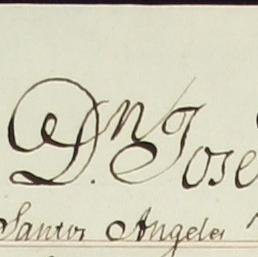 Dn. Jose
Santos Angeles